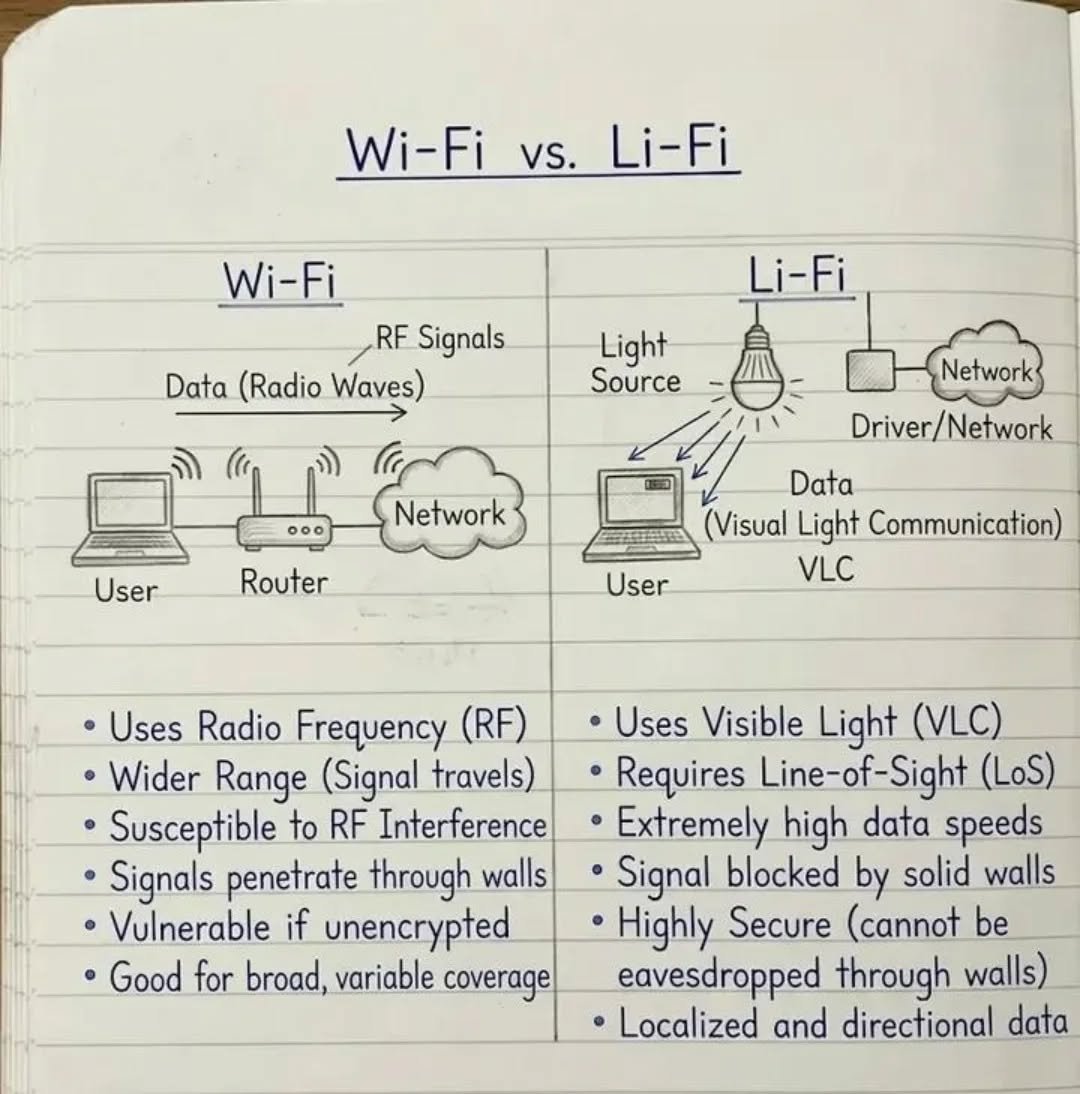 Wi-Fi vs. Li-Fi
Wi-Fi
RF Signals
Data (Radio Waves)
Network
User
Router
• Uses Radio Frequency (RF)
• Wider Range (Signal travels)
• Susceptible to RF Interference
• Signals penetrate through walls
• Vulnerable if unencrypted
• Good for broad, variable coverage
Li-Fi
Light
Source
Network
Driver/Network
Data
(Visual Light Communication)
VLC
User
• Uses Visible Light (VLC)
• Requires Line-of-Sight (LoS)
• Extremely high data speeds
• Signal blocked by solid walls
• Highly Secure (cannot be
eavesdropped through walls)
• Localized and directional data